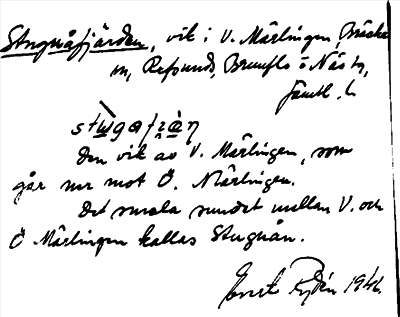 Stugnåfjärden, vik i V. Mårlingen, Bräcke
sn, Refsunds, Brunflo o Näs tg,
Jämtl. l.
Den vik av V. Mårlingen, som
går ner mot Ö. Mårlingen.
Det smala sundet mellan V. och
Ö Mårlingen kallas Stugnån.
1946.